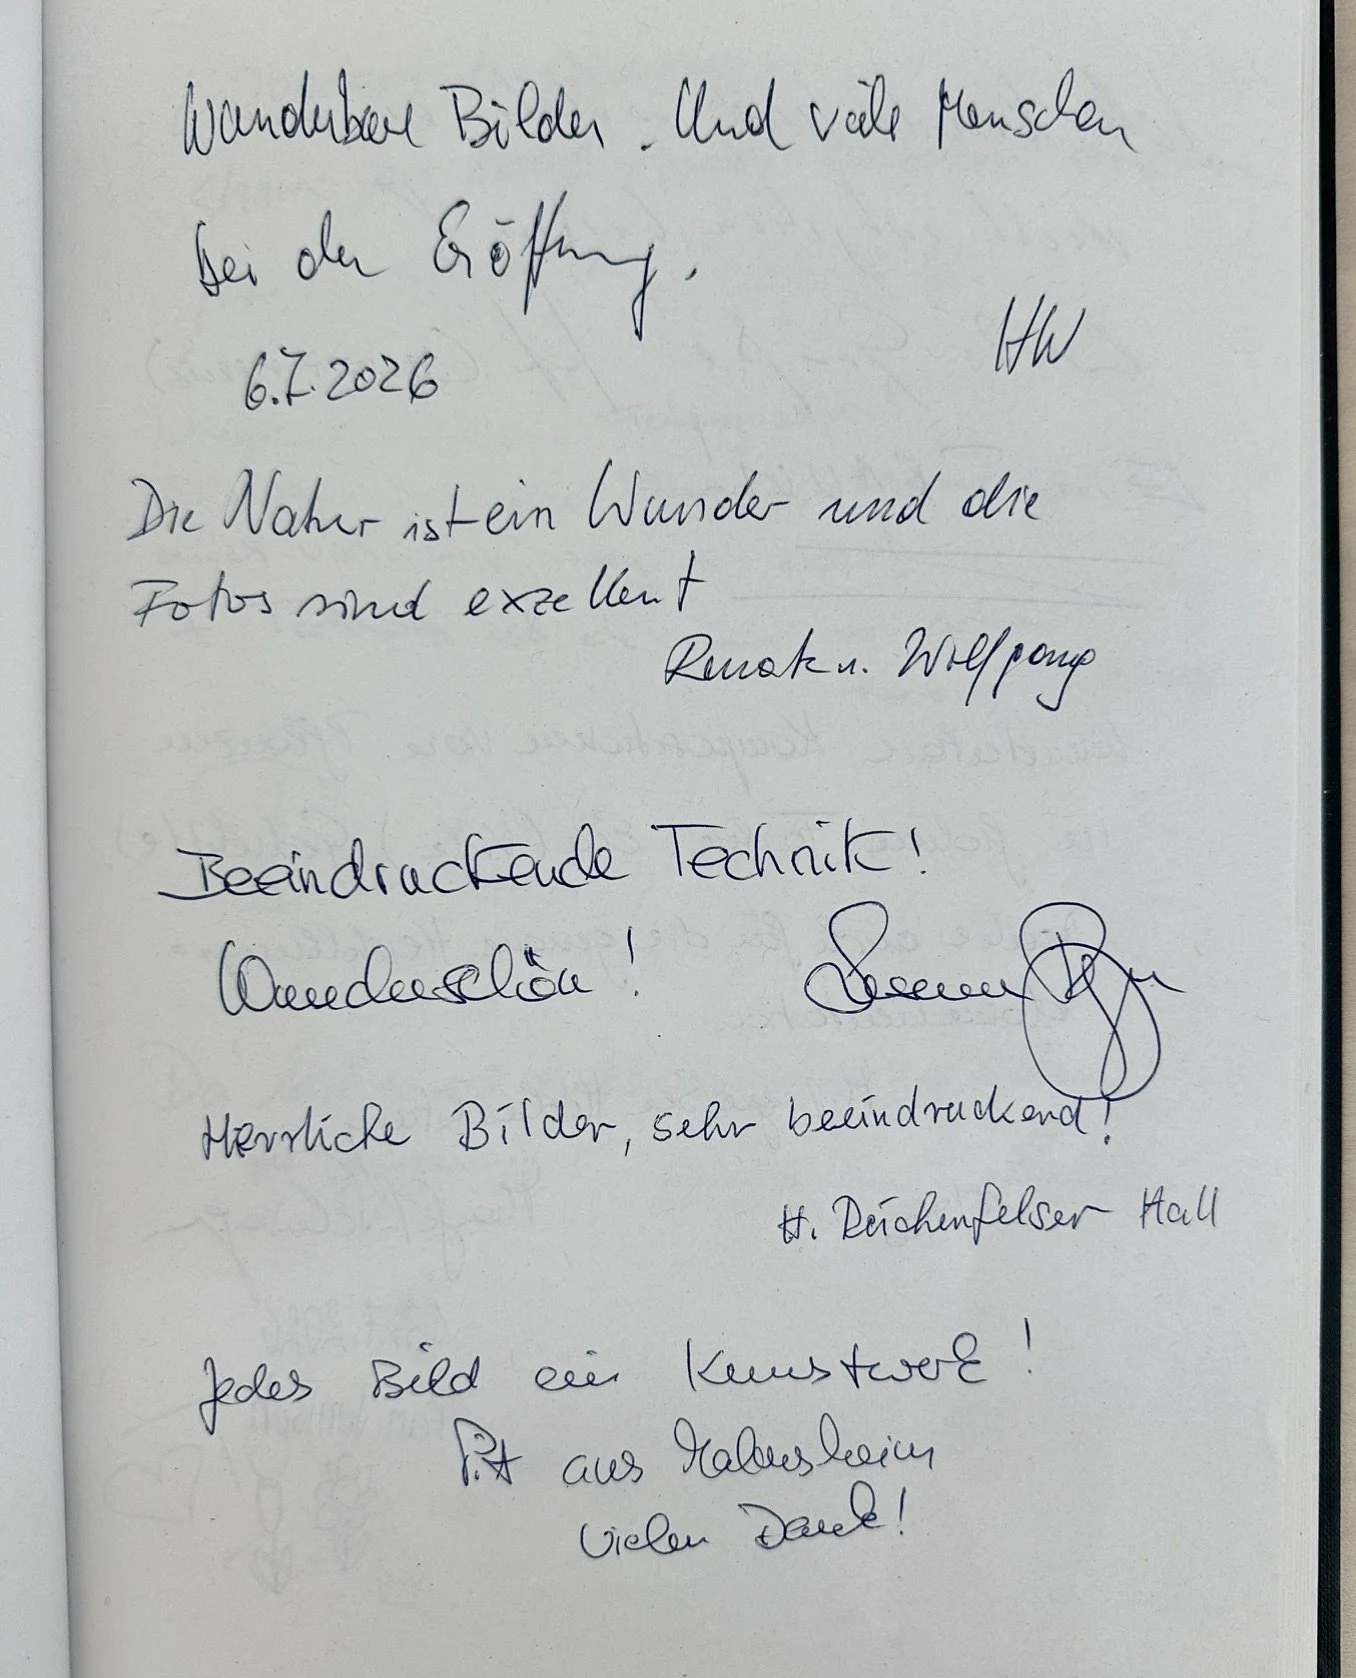 Wunderbare Bilder. Und viele Menschen
bei der Eröffnung.
HW
6.7.2026
Die Natur ist ein Wunder und die
Fotos sind exzellent
Renate u. Wolfgang
Beeindruckende Technik!
Wunderschön!
Herrliche Bilder, sehr beeindruckend!
H. Deichenfelser Hall
Jedes Bild ein Kunstwerk!
aus
Vielen Dank!